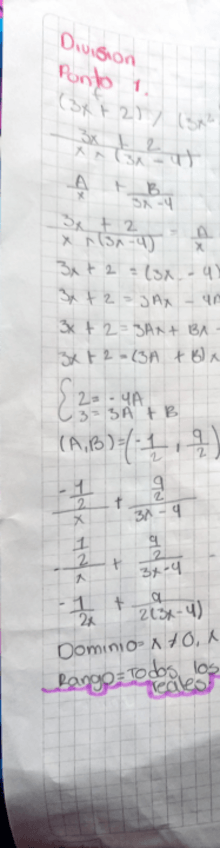 Division
Punto 1.
(3x + 2) / (3x²
3x + 2 / x × (3x - 4)
A/x + B/3x-4
3x + 2 / x × (3x-4) = A/x
3x + 2 = (3x - 4)
3x + 2 = 3Ax - 4A
3x + 2 = 3Ax + Bx -
3x + 2 = (3A + B)x
{ 2 = -4A
3 = 3A + B
(A,B) = (-1/2 , 9/2)
-1/2 / x + 9/2 / 3x-4
- 1/2 / x + 9/2 / 3x-4 -
- 1/2x + 9/2(3x-4)
Dominio = x ≠ 0, x
Rango = Todos los
reales